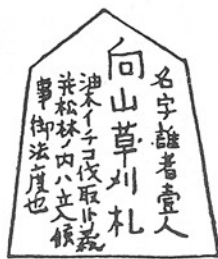 名字誰者壹人
向山草刈札
油木イチコ伐取候義
并松林ノ内ハ立入候
事御法度也